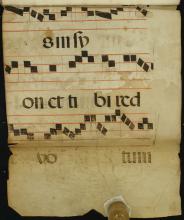 sinsy
on et ti bi red
vo tum